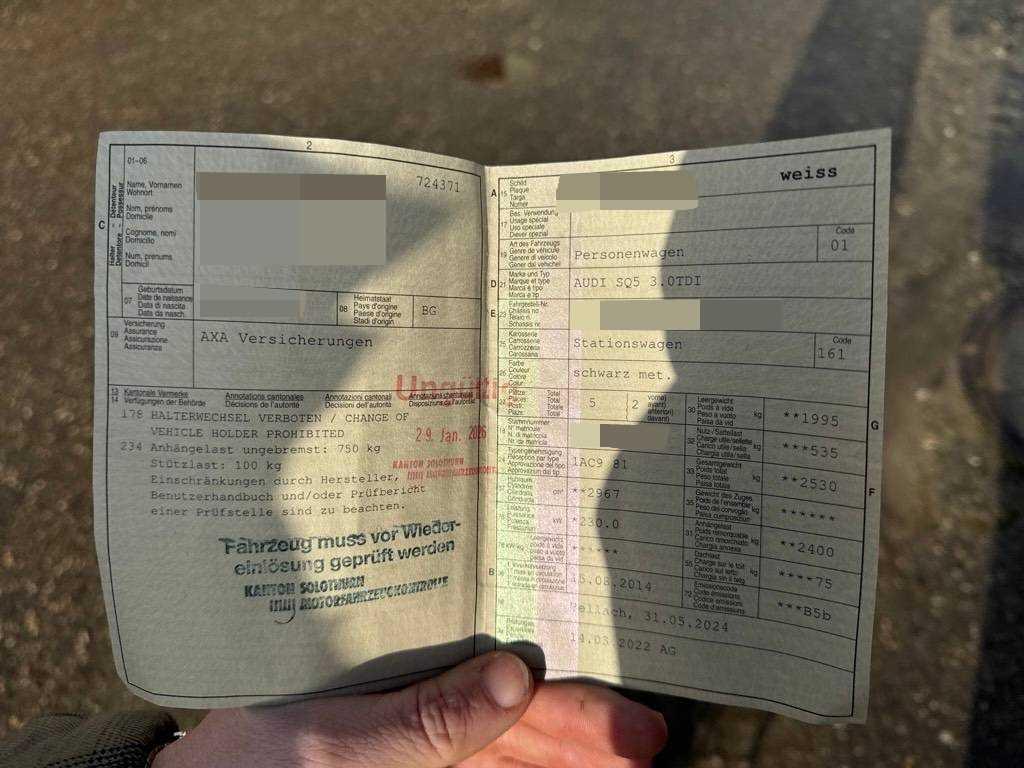 2
01-06
Halter - Détenteur
Detentore - Possessur
C
Name, Vornamen
Wohnort
Nom, prénoms
Domicile
Cognome, nomi
Domicilio
Num, prenums
Domicil
724371
07
Geburtsdatum
Date de naissance
Data di nascita
Data da nasch.
08
Heimatstaat
Pays d'origine
Paese d'origine
Stadi d'origin
BG
09
Versicherung
Assurance
Assicurazione
Assicuranza
AXA Versicherungen
Ungültig
Kantonale Vermerke
Verfügungen der Behörde
Annotations cantonales
Décisions de l'autorité
Annotazioni cantonali
Decisioni dell'autorità
178 HALTERWECHSEL VERBOTEN / CHANGE OF
VEHICLE HOLDER PROHIBITED
29. Jan. 2026
234 Anhängelast ungebremst: 750 kg
Stützlast: 100 kg
KANTON SOLOTHURN
Einschränkungen durch Hersteller,
Benutzerhandbuch und/oder Prüfbericht
einer Prüfstelle sind zu beachten.
Fahrzeug muss vor Wieder-
einlösung geprüft werden
KANTON SOLOTHURN
MOTORFAHRZEUGKONTROLLE
3
A
15
Schild
Plaque
Targa
Numer
weiss
17
Bes. Verwendung
Usage spécial
Uso speciale
Diever spezial
19
Art des Fahrzeugs
Genre de véhicule
Genere di veicolo
Gener dal vehichel
Personenwagen
Code
01
D
21
Marke und Typ
Marque et type
Marca e tipo
Marca e tip
AUDI SQ5 3.0TDI
E
23
Fahrgestell-Nr.
Châssis no
Telaio n.
Schassis nr.
25
Karosserie
Carrosserie
Carrozzeria
Carossaria
Stationswagen
Code
161
26
Farbe
Couleur
Colore
Colur
schwarz met.
27
Plätze: Total
Places: Total
Posti: Totale
Plazs: Total
5
2
vorne)
avant)
anteriori)
davant)
30
Leergewicht
Poids à vide
Peso a vuoto
Paisa da vid
kg
**1995
G
18
Stammnummer
N° matricule
N. di matricola
Nr. da matricla
32
Nutz-/Sattellast
Charge utile/sellette
Carico utile/sella
Chargia utila/sella
kg
**535
24
Typengenehmigung
Réception par type
Approvazione del tipo
Approvaziun dal tip
1AC9 81
33
Gesamtgewicht
Poids total
Peso totale
Paisa totala
kg
**2530
F
37
Hubraum
Cylindrée
Cilindrata
Cilindrada
cm³
**2967
35
Gewicht des Zuges
Poids de l'ensemble
Peso del convoglio
Paisa cumposiziun
kg
******
Leistung
Puissance
Potenza
kW
*230.0
31
Anhängelast
Poids remorquable
Carico rimorchiato
Chargia annexa
kg
**2400
******
55
Dachlast
Charge sur le toit
Carico sul tetto
Chargia sin il tetg
kg
****75
B
36
15.08.2014
72
Emissionscode
Code émissions
Codice emissioni
Code d'emissiuns
***B5b
Bellach, 31.05.2024
14.03.2022 AG